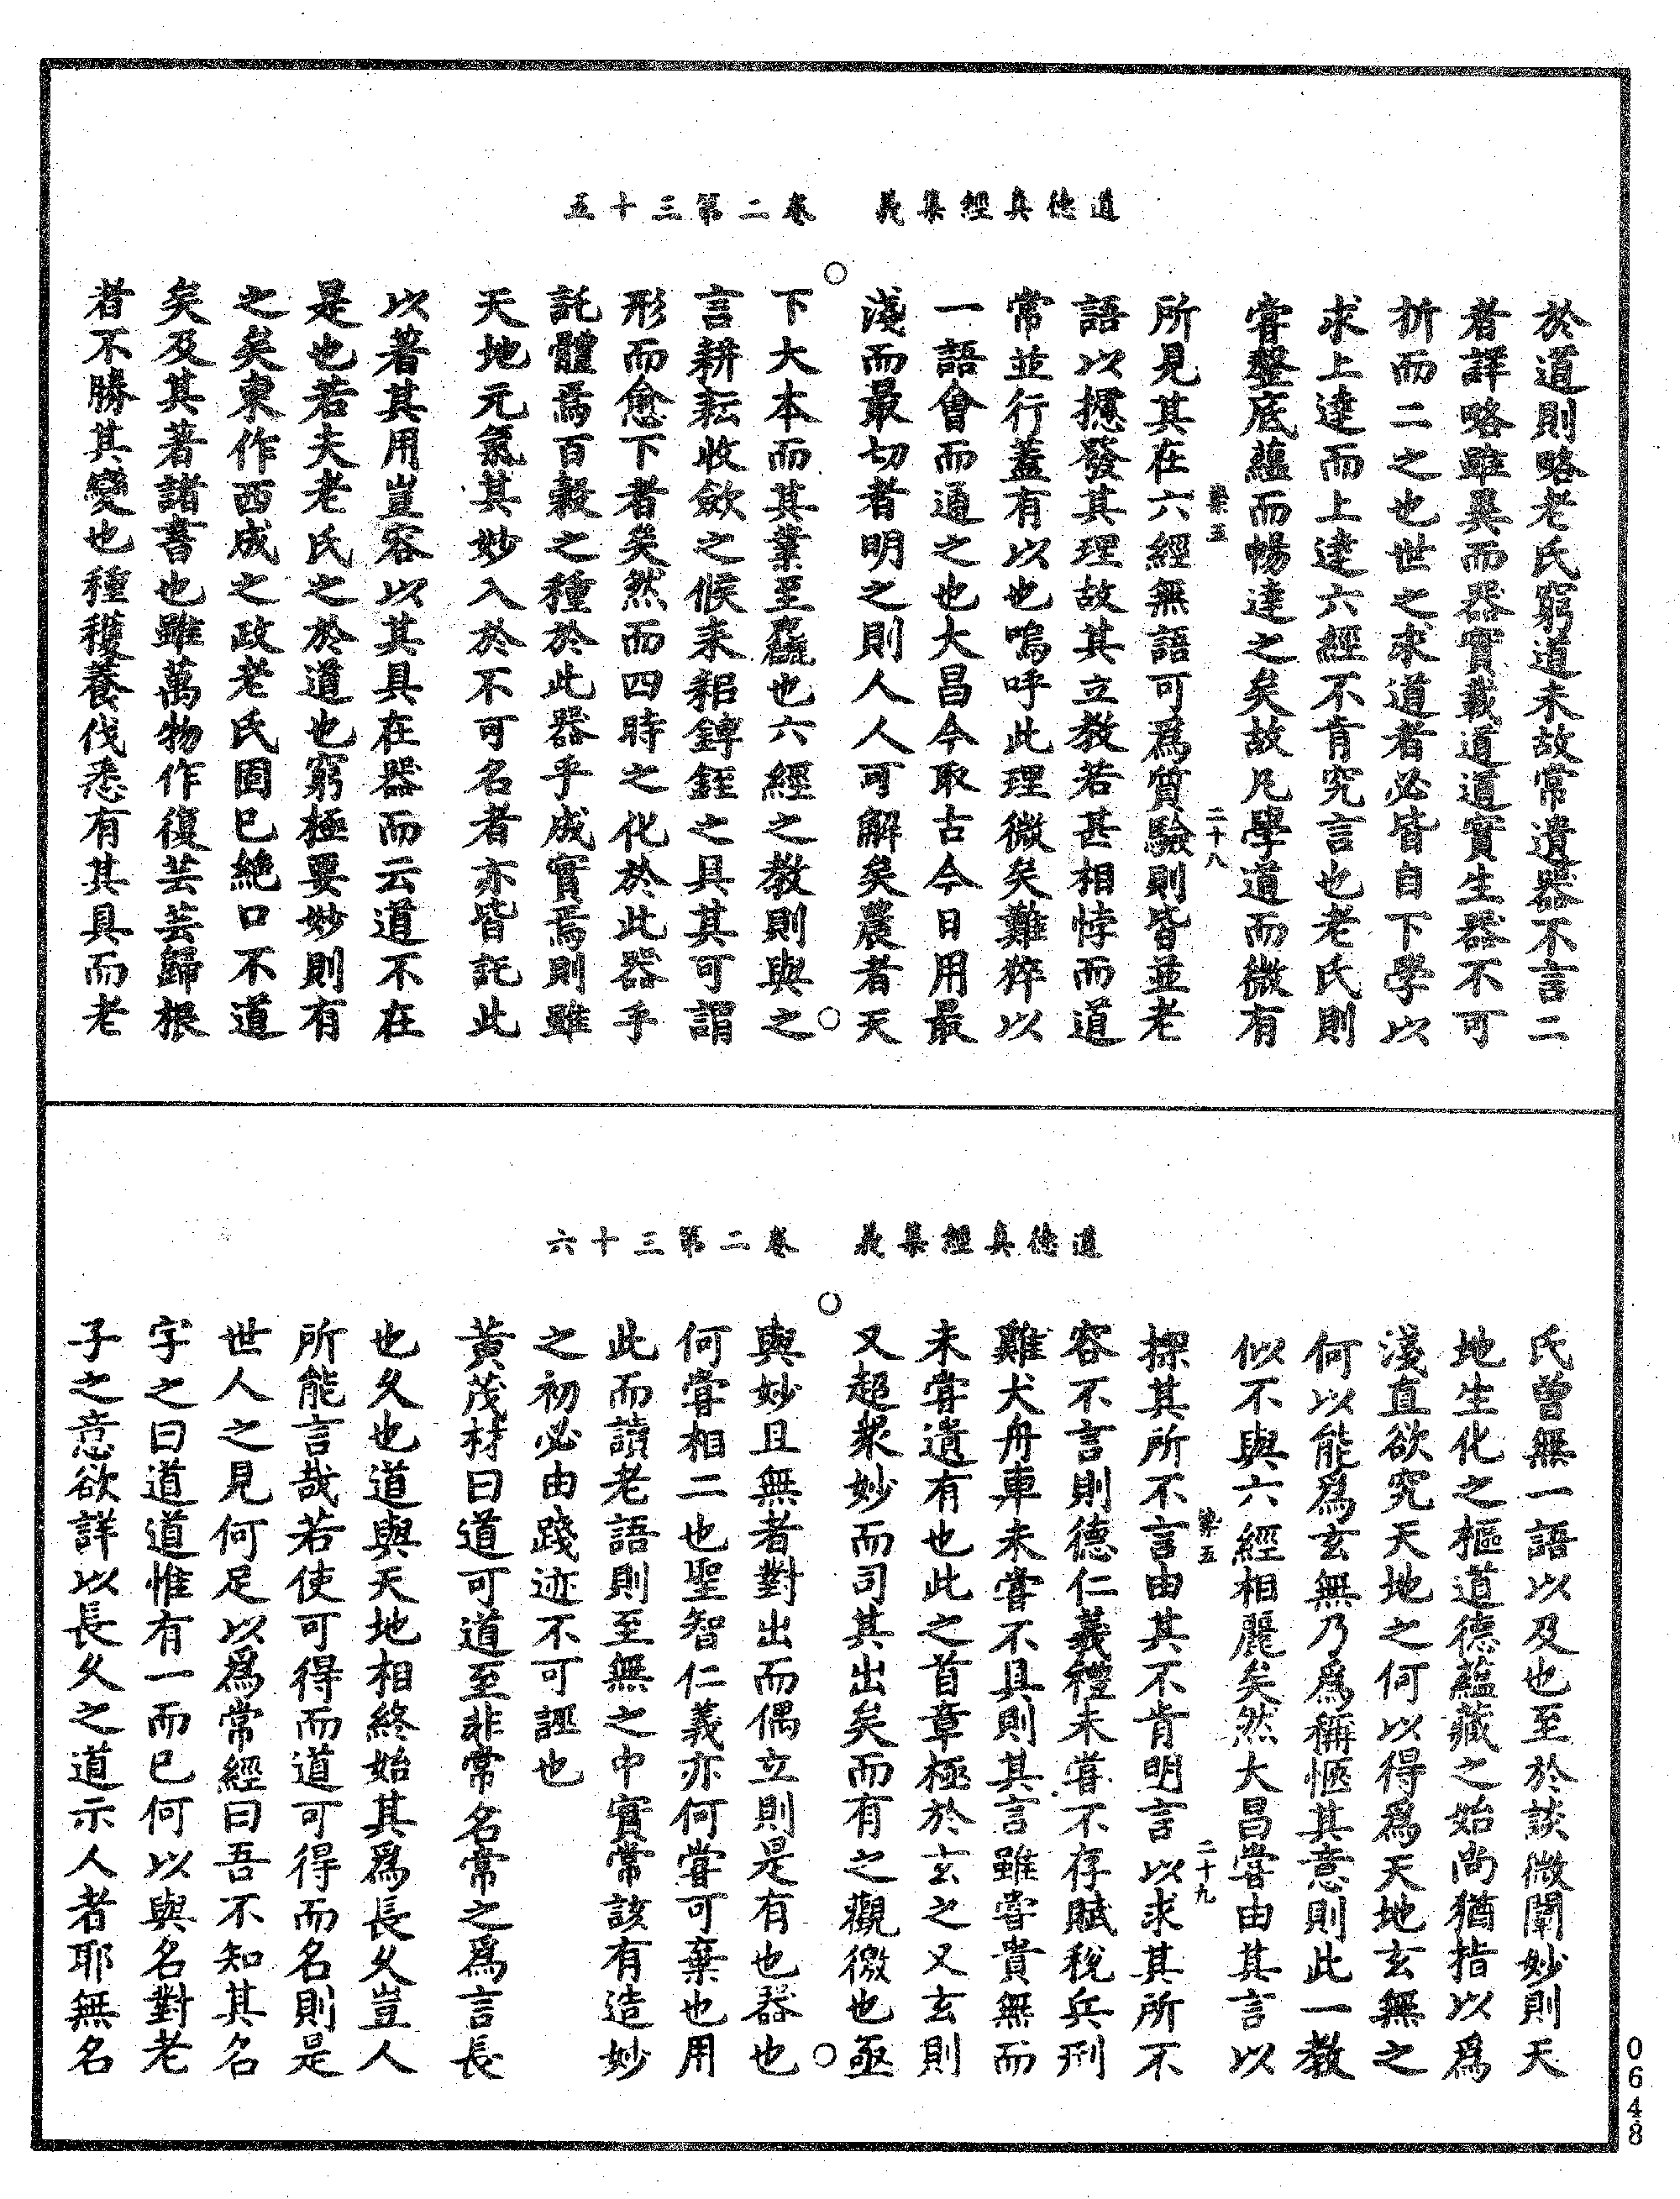 道德真經集義　卷二第三十五
於道則略老氏窮道未故常遺器不言二
者詳略雖異而器實載道道實生器不可
折而二之也世之求道者必皆自下學以
求上達而上達六經不肯究言也老氏則
甞罄底蘊而暢達之矣故凡學道而微有
染五　二十八
所見其在六經無語可為質驗則皆並老
語以摠發其理故其立教若甚相悖而道
常並行蓋有以也嗚呼此理微矣難猝以
一語會而通之也大昌今取古今日用最
淺而最切者明之則人人可解矣農者天
下大本而其業至麤也六經之教則與之
言耕耘收斂之候耒耜錍銍之具其可謂
形而愈下者矣然而四時之化於此器乎
託體焉百穀之種於此器乎成實焉則雖
天地元氣其妙入於不可名者亦皆託此
以著其用豈容以其具在器而云道不在
是也若夫老氏之於道也窮極要妙則有
之矣東作西成之政老氏固已絶口不道
矣及其著諸書也雖萬物作復芸芸歸根
者不勝其變也種穫養伐悉有其具而老
道德真經集義　卷二第三十六
氏曾無一語以及也至於談微闡妙則天
地生化之樞道德蘊藏之始尚猶指以爲
淺直欲究天地之何以得爲天地玄無之
何以能爲玄無乃爲稱愜其意則此一教
似不與六經相麗矣然大昌甞由其言以
染五　二十九
探其所不言由其不肯明言以求其所不
容不言則德仁義禮未甞不存賦稅兵刑
雞犬舟車未甞不具則其言雖甞貴無而
未甞遺有也此之首章極於玄之又玄則
又超衆妙而司其出矣而有之觀徼也亟
與妙且無者對出而偶立則是有也器也
何甞相二也聖智仁義亦何甞可棄也用
此而讀老語則至無之中實常該有造妙
之初必由踐迹不可誣也
黃茂材曰道可道至非常名常之爲言長
也久也道與天地相終始其爲長久豈人
所能言哉若使可得而道可得而名則是
世人之見何足以爲常經曰吾不知其名
字之曰道道惟有一而已何以與名對老
子之意欲詳以長久之道示人者耶無名
0648